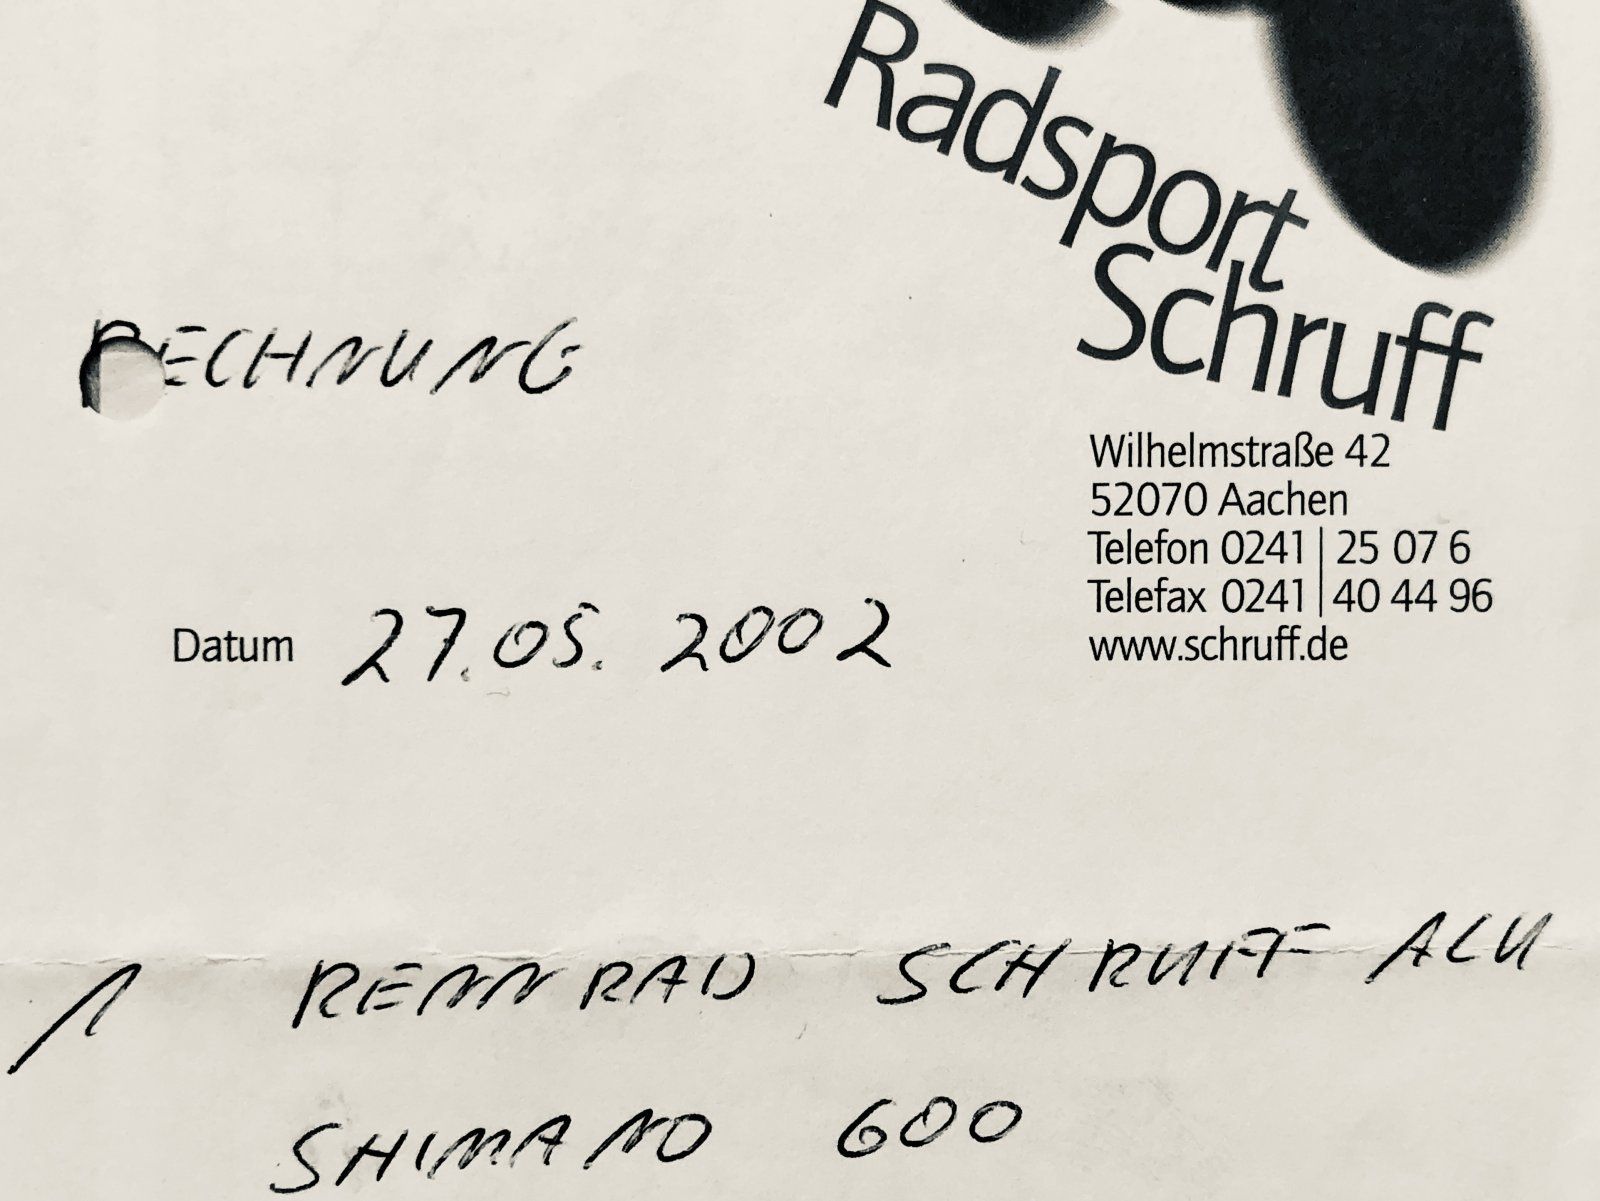 Radsport
Schruff
RECHNUNG
Wilhelmstraße 42
52070 Aachen
Telefon 0241 | 25 07 6
Telefax 0241 | 40 44 96
www.schruff.de
Datum 27.05. 2002
1 RENNRAD SCHRUFF ALU
SHIMANO 600